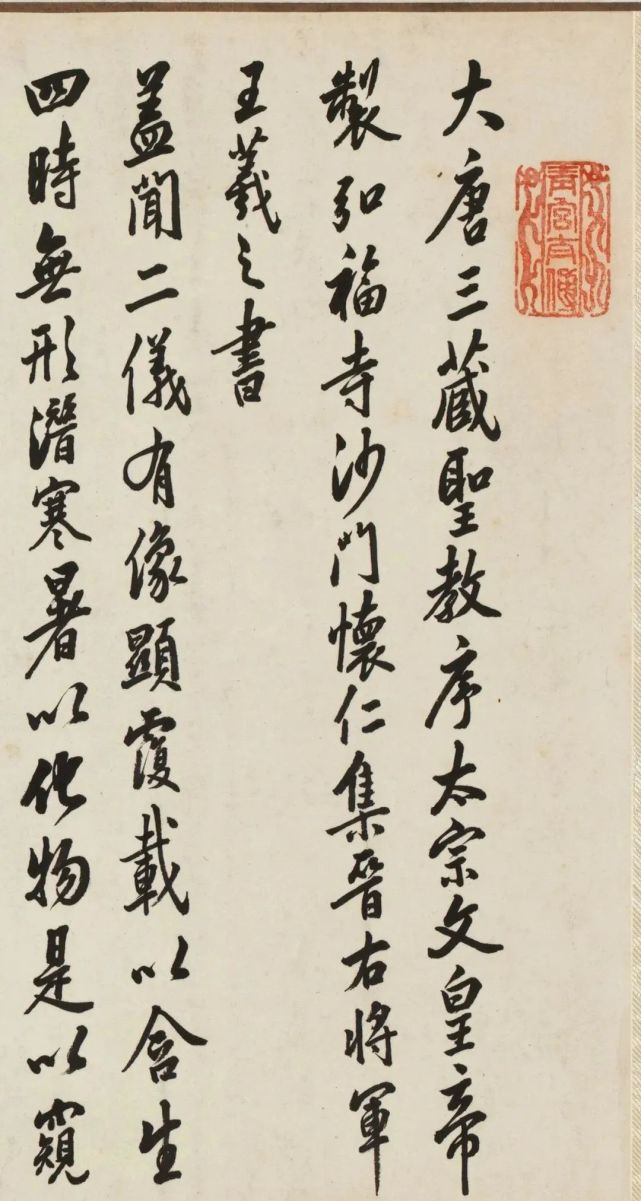 大唐三藏聖教序太宗文皇帝
製弘福寺沙門懷仁集晉右將軍
王羲之書
蓋聞二儀有像顯覆載以含生
四時無形潛寒暑以化物是以窺